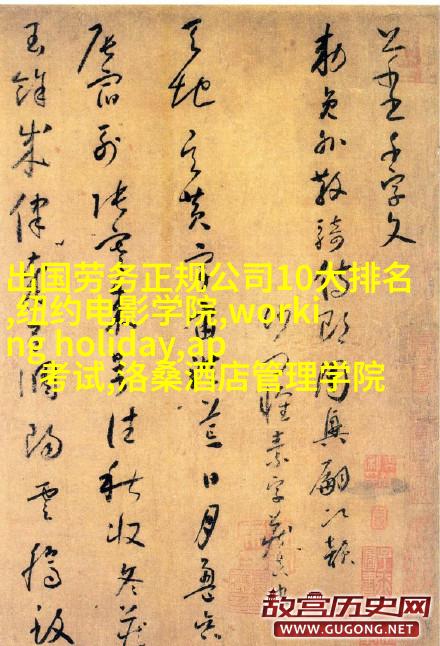 千字文
勅員外散騎侍郎周興嗣次韻
沙門懷素字藏真
天地玄黃宇宙洪荒日月盈昃
辰宿列張寒來暑往秋收冬藏
餘成 律 調陽雲騰致
出国劳务正规公司10大排名
,纽约电影学院,worki
ng holiday,ap
考试,洛桑酒店管理学院
故宫历史网
WWW.GUGONG.NET